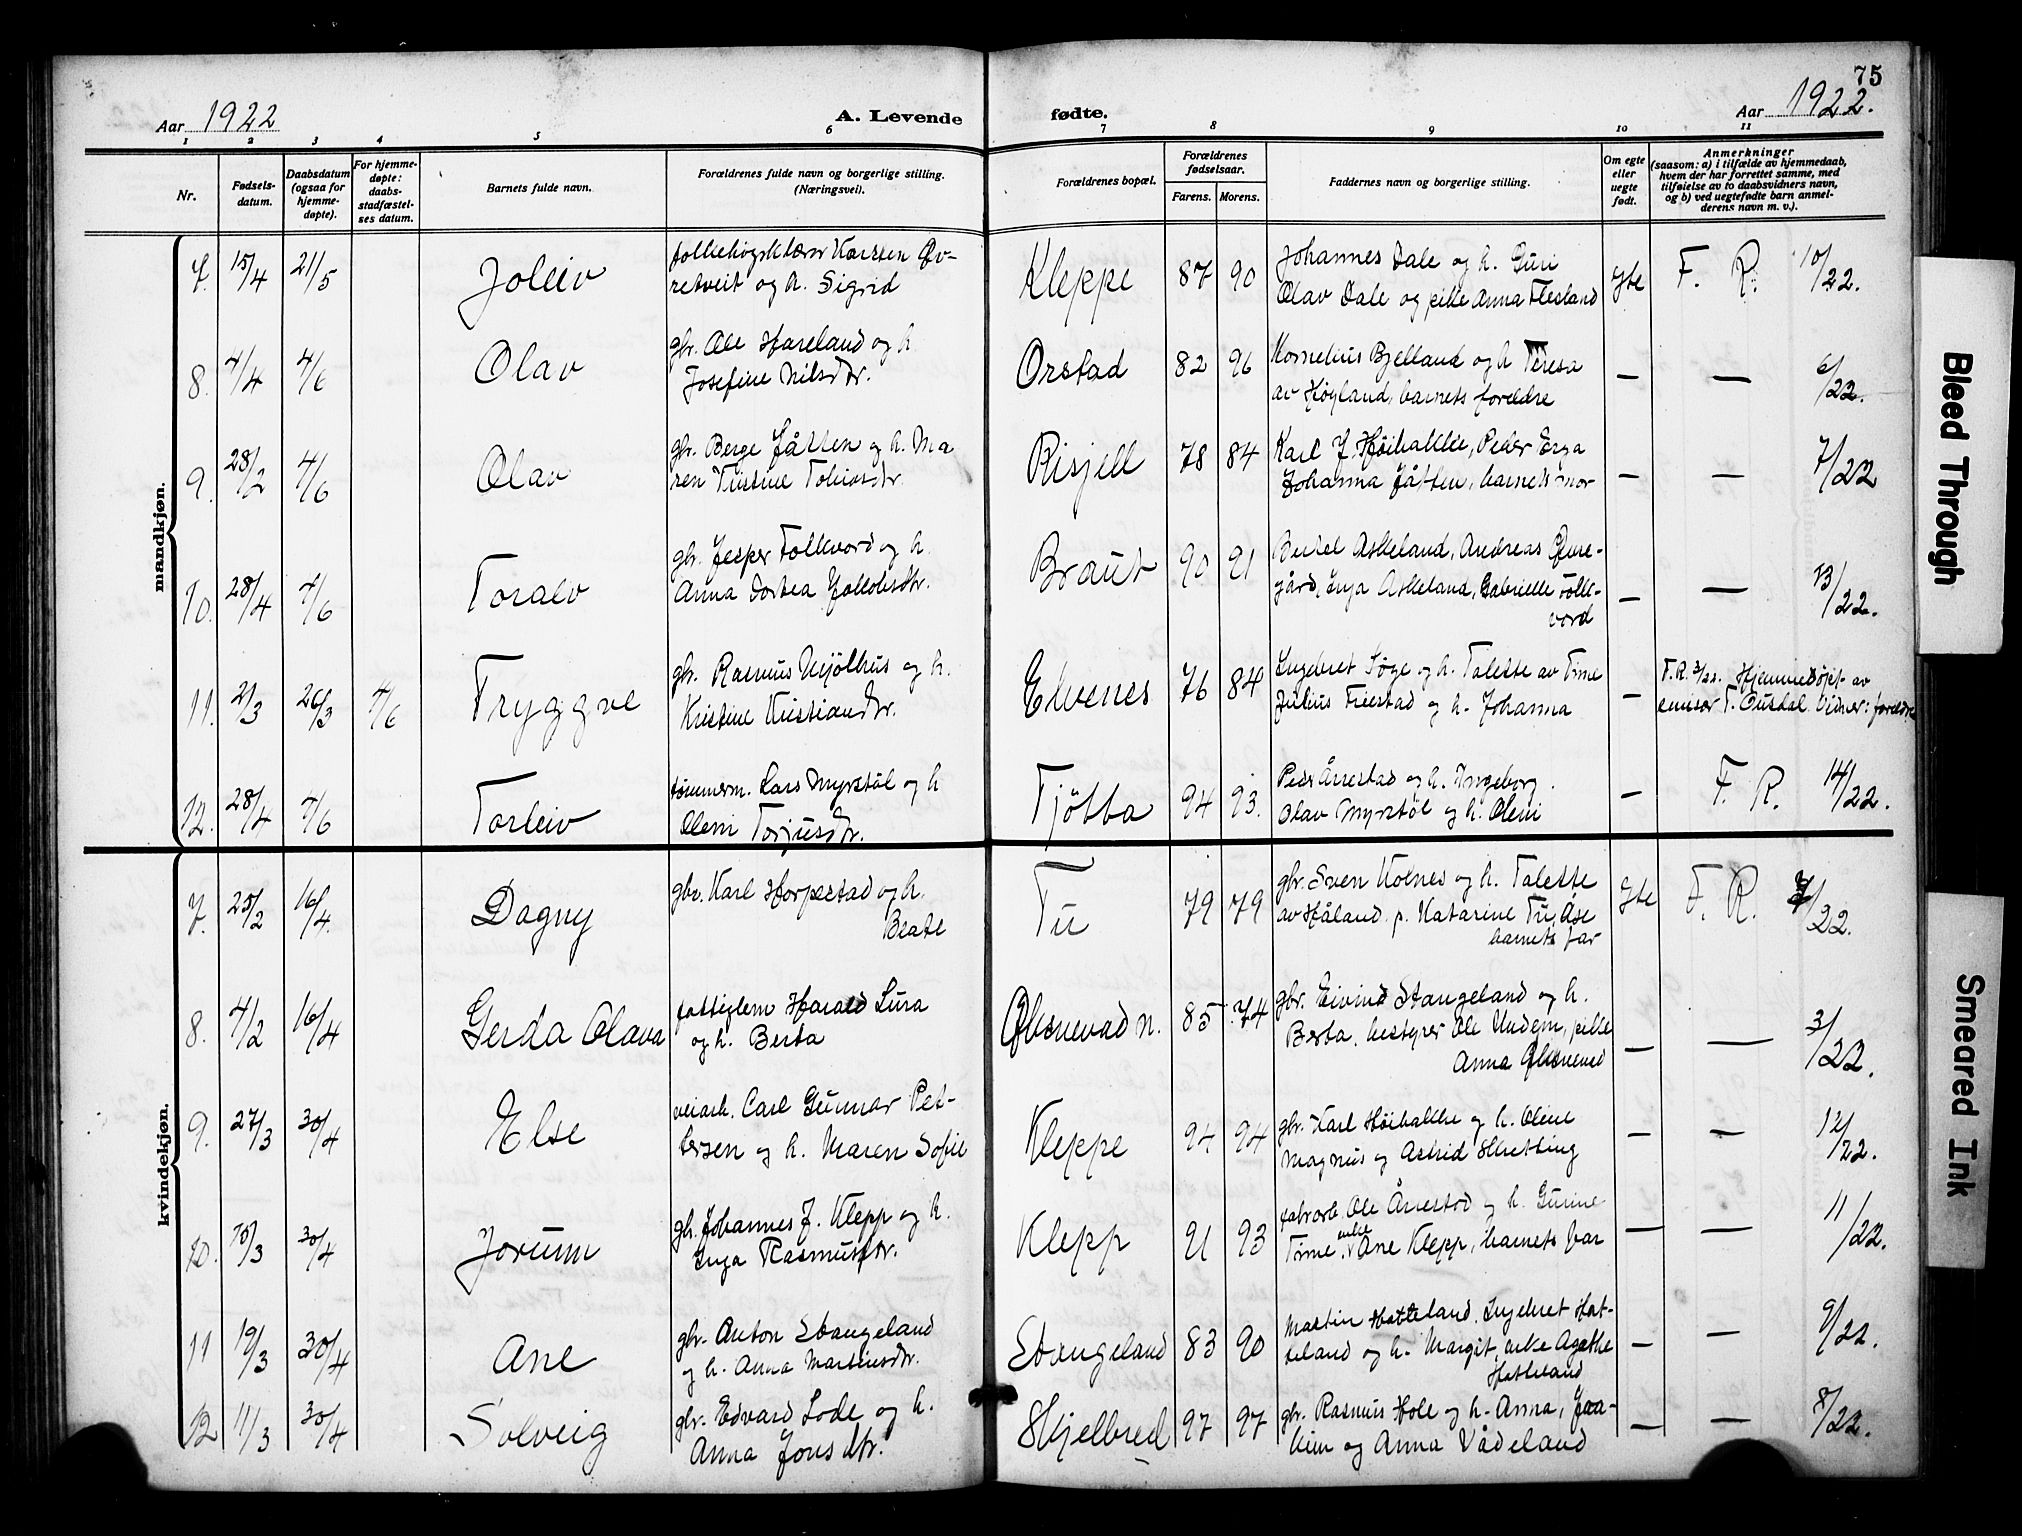 75
Aar 1922
A. Levende fødte.
Aar 1922.
1 2 3 4 5 6 7 8 9 10 11
Nr.
Fødsels-
datum.
Daabsdatum
(ogsaa for
hjemme-
døpte).
For hjemme-
døpte:
daabs-
stadfæstel-
ses datum.
Barnets fulde navn.
Forældrenes fulde navn og borgerlige stilling.
(Næringsvei).
Forældrenes bopæl.
Forældrenes
fødselsaar.
Farens. Morens.
Faddernes navn og borgerlige stilling.
Om egte
eller
uegte
født.
Anmerkninger
(saasom: a) i tilfælde av hjemmedaab,
hvem der har forrettet samme, med
tilføielse av to daabsvidners navn,
og b) ved uegtefødte barn anmel-
derens navn m. v.).
mandkjøn.
7. 15/4 21/5 Joleiv
Karsten Øv-
retveit og h. Sigrid
Kleppe 87 90
Johannes Dale og h. Guri
Olav Dale og pike Anna Flesland
F. R. 10/22.
8. 4/4 4/6 Olav
gbr. Ole Hareland og h.
Josefine Nilsdtr.
Orstad 82 96
Kornelius Bjelland og h Teresa
av Høyland, barnets foreldre
— — 6/22.
9. 28/2 4/6 Olav
gbr. Berge Jåtten og h. Ma
ren Tistine Tobiasdtr.
Risjell 78 84
Karl J. Høibakke, Peder Erga
Johanna Jåtten, barnets mor
— — 7/22
10. 28/4 4/6 Toralv
gbr. Jesper Folkvord og h.
Anna Dortea Jakobsdtr.
Braut 90 91
Bertel Askeland, Andreas
gård, Inga Askeland, Gabrielle Folk-
vord
— — 13/22.
11. 2/3 26/3 4/6 Tryggve
gbr. Rasmus Mjølhus og h.
Kristine Kristiandtr.
Elvenes 76 84
Ingebret Søge og h. Talette av Time
Julius Friestad og h. Johanna
— F. R. 3/22. Hjemmedøpt av
emisær T. Ousdal. Vidner: foreldre
12. 28/4 4/6 Torleiv
tømmerm. Lars Myrstøl og h
Oleni Torjusdtr.
Tjøtta 94 93.
Peder Årrestad og h. Ingeborg.
Olav Myrstøl og h. Oleni
— F. R. 14/22.
kvindekjøn.
7. 25/2 16/4. Dagny
gbr. Karl Horpestad og h.
Beate
Tu 79 79
gbr. Sven Kolnes og h. Talette
av Håland. p. Katarine Tu, Åse
barnets far
F. R. /22.
8. 4/2 16/4 Gerda Olava
Harald Lura
og h. Berta
Øksnevad n. 85 74
gbr. Eivind Stangeland og h.
Berta, bestyrer Ole Undem, pike
Anna Øksnevad
— — 3/22.
9. 27/3 30/4 Else
veiarb. Carl Gunnar Pet-
tersen og h. Maren Sofie
Kleppe 94 94
gbr. Karl Høibakke og h. Oline
Magnus og Astrid Skretting
— — 12/22.
10. 10/3 30/4 Jorunn
gbr. Johannes J. Klepp og h.
Inga Rasmusdtr.
Klepp 91 93
fabrarb. Ole Årrestad og h. Gunne
Time, enke Ane Klepp, barnets far
— — 11/22.
11 19/3 30/4 Ane
gbr. Anton Stangeland
og h. Anna Martinsdtr.
Stangeland 83 90
Martin Hatteland, Ingebret Hat-
teland og h. Margit, enke Agathe
Hatteland
— — 9/22.
12 11/3 30/4 Solveig
gbr. Edvard Lode og h.
Anna Jonsdtr.
Skjelbred 97 97
gbr. Rasmus Hole og h. Anna, Joa-
kim og Anna Vådeland
— — 8/22.
Bleed Through
Smeared Ink